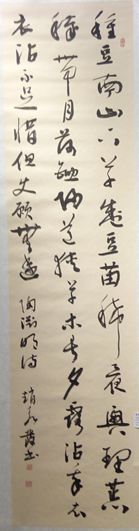 種豆南山下草盛豆苗稀晨興理荒
穢帶月荷鋤歸道狹草木長夕露沾我衣
衣沾不足惜但使願無違 陶淵明詩 趙書